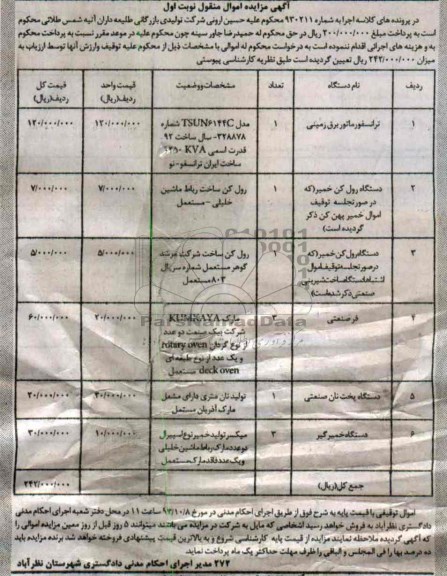 آگهی مزایده اموال منقول نوبت اول
در پرونده های کلاسه اجرا به شماره ۹۳۰۲۱۱ محکوم علیه حسین ارونی شرکت تولیدی بازرگانی طلیعه داران آتیه شمس طلائی محکوم
است به پرداخت مبلغ ۲۰۰/۰۰۰/۰۰۰ ریال در حق محکوم له حمیدرضا جاور سینه چون محکوم علیه در موعد مقرر نسبت به پرداخت محکوم
به و هزینه های اجرائی اقدام ننموده است به درخواست محکوم له اموالی با مشخصات ذیل از محکوم علیه توقیف وارزش آنها توسط ارزیاب به
میزان ۲۴۲/۰۰۰/۰۰۰ ریال تعیین گردیده است طبق نظریه کارشناسی پیوستی
ردیف نام دستگاه تعداد مشخصات ووضعیت قیمت واحد ردیف(ریال) قیمت کل ردیف(ریال)
۱ ترانسفورماتور برق زمینی ۱ مدل TSUN۶۱۴۴C شماره ۱۲۰/۰۰۰/۰۰۰ ۱۲۰/۰۰۰/۰۰۰
۳۲۸۸۷۸- سال ساخت ۹۲
قدرت اسمی KVA
ساخت ایران ترانسفو-نو
۲ دستگاه رول کن خمیر(که ۱ رول کن ساخت رباط ماشین ۷/۰۰۰/۰۰۰ ۷/۰۰۰/۰۰۰
در صورتجلسه توقیف خلیلی -مستعمل
اموال خمیر پهن کن ذکر
گردیده است)
۳ دستگاه رول کن خمیر(که ۱ رول کن ساخت شرکت مرشد ۵/۰۰۰/۰۰۰ ۵/۰۰۰/۰۰۰
درصورتجلسه توقیف اموال گوهر مستعمل شماره سریال
اشتباها دستگاه ساخت شیرینی ۸۰۳ مستعمل
صنعتی ذکر شده است)
۴ فر صنعتی ۳ مارک KUMKAYA ۲۰/۰۰۰/۰۰۰ ۶۰/۰۰۰/۰۰۰
شرکت پیک صنعت دو عدد
از نوع گردان rotary oven
و یک عدد از نوع طبقه ای
deck oven مستعمل
۵ دستگاه پخت نان صنعتی ۱ تولید نان متری دارای مشعل ۲۰/۰۰۰/۰۰۰ ۲۰/۰۰۰/۰۰۰
مارک آذربان مستعمل
۶ دستگاه خمیر گیر ۳ میکسر تولید خمیر نوع اسپیرال ۱۰/۰۰۰/۰۰۰ ۳۰/۰۰۰/۰۰۰
دو عدد مارک رباط ماشین خلیلی
ویک عدد فاقد مارک مستعمل
جمع کل(ریال) ۲۴۲/۰۰۰/۰۰۰
اموال توقیفی با قیمت پایه به شرح فوق از طریق اجرای احکام مدنی در مورخ ۹۳/۱۰/۸ ساعت ۱۱ در محل دفتر شعبه اجرای احکام مدنی
دادگستری نظرآباد به فروش خواهد رسید اشخاصی که مایل به شرکت در مزایده می باشند میتوانند ۵ روز قبل از روز معین مزایده اموالی را
که آگهی گردیده ملاحظه نمایند مزایده از قیمت پایه کارشناسی شروع و به بالاترین قیمت پیشنهادی فروخته خواهد شد برنده مزایده باید
ده درصد بها را فی المجلس و الباقی را ظرف مهلت حداکثر یک ماه پرداخت نماید.
۲۷۲ مدیر اجرای احکام مدنی دادگستری شهرستان نظرآباد